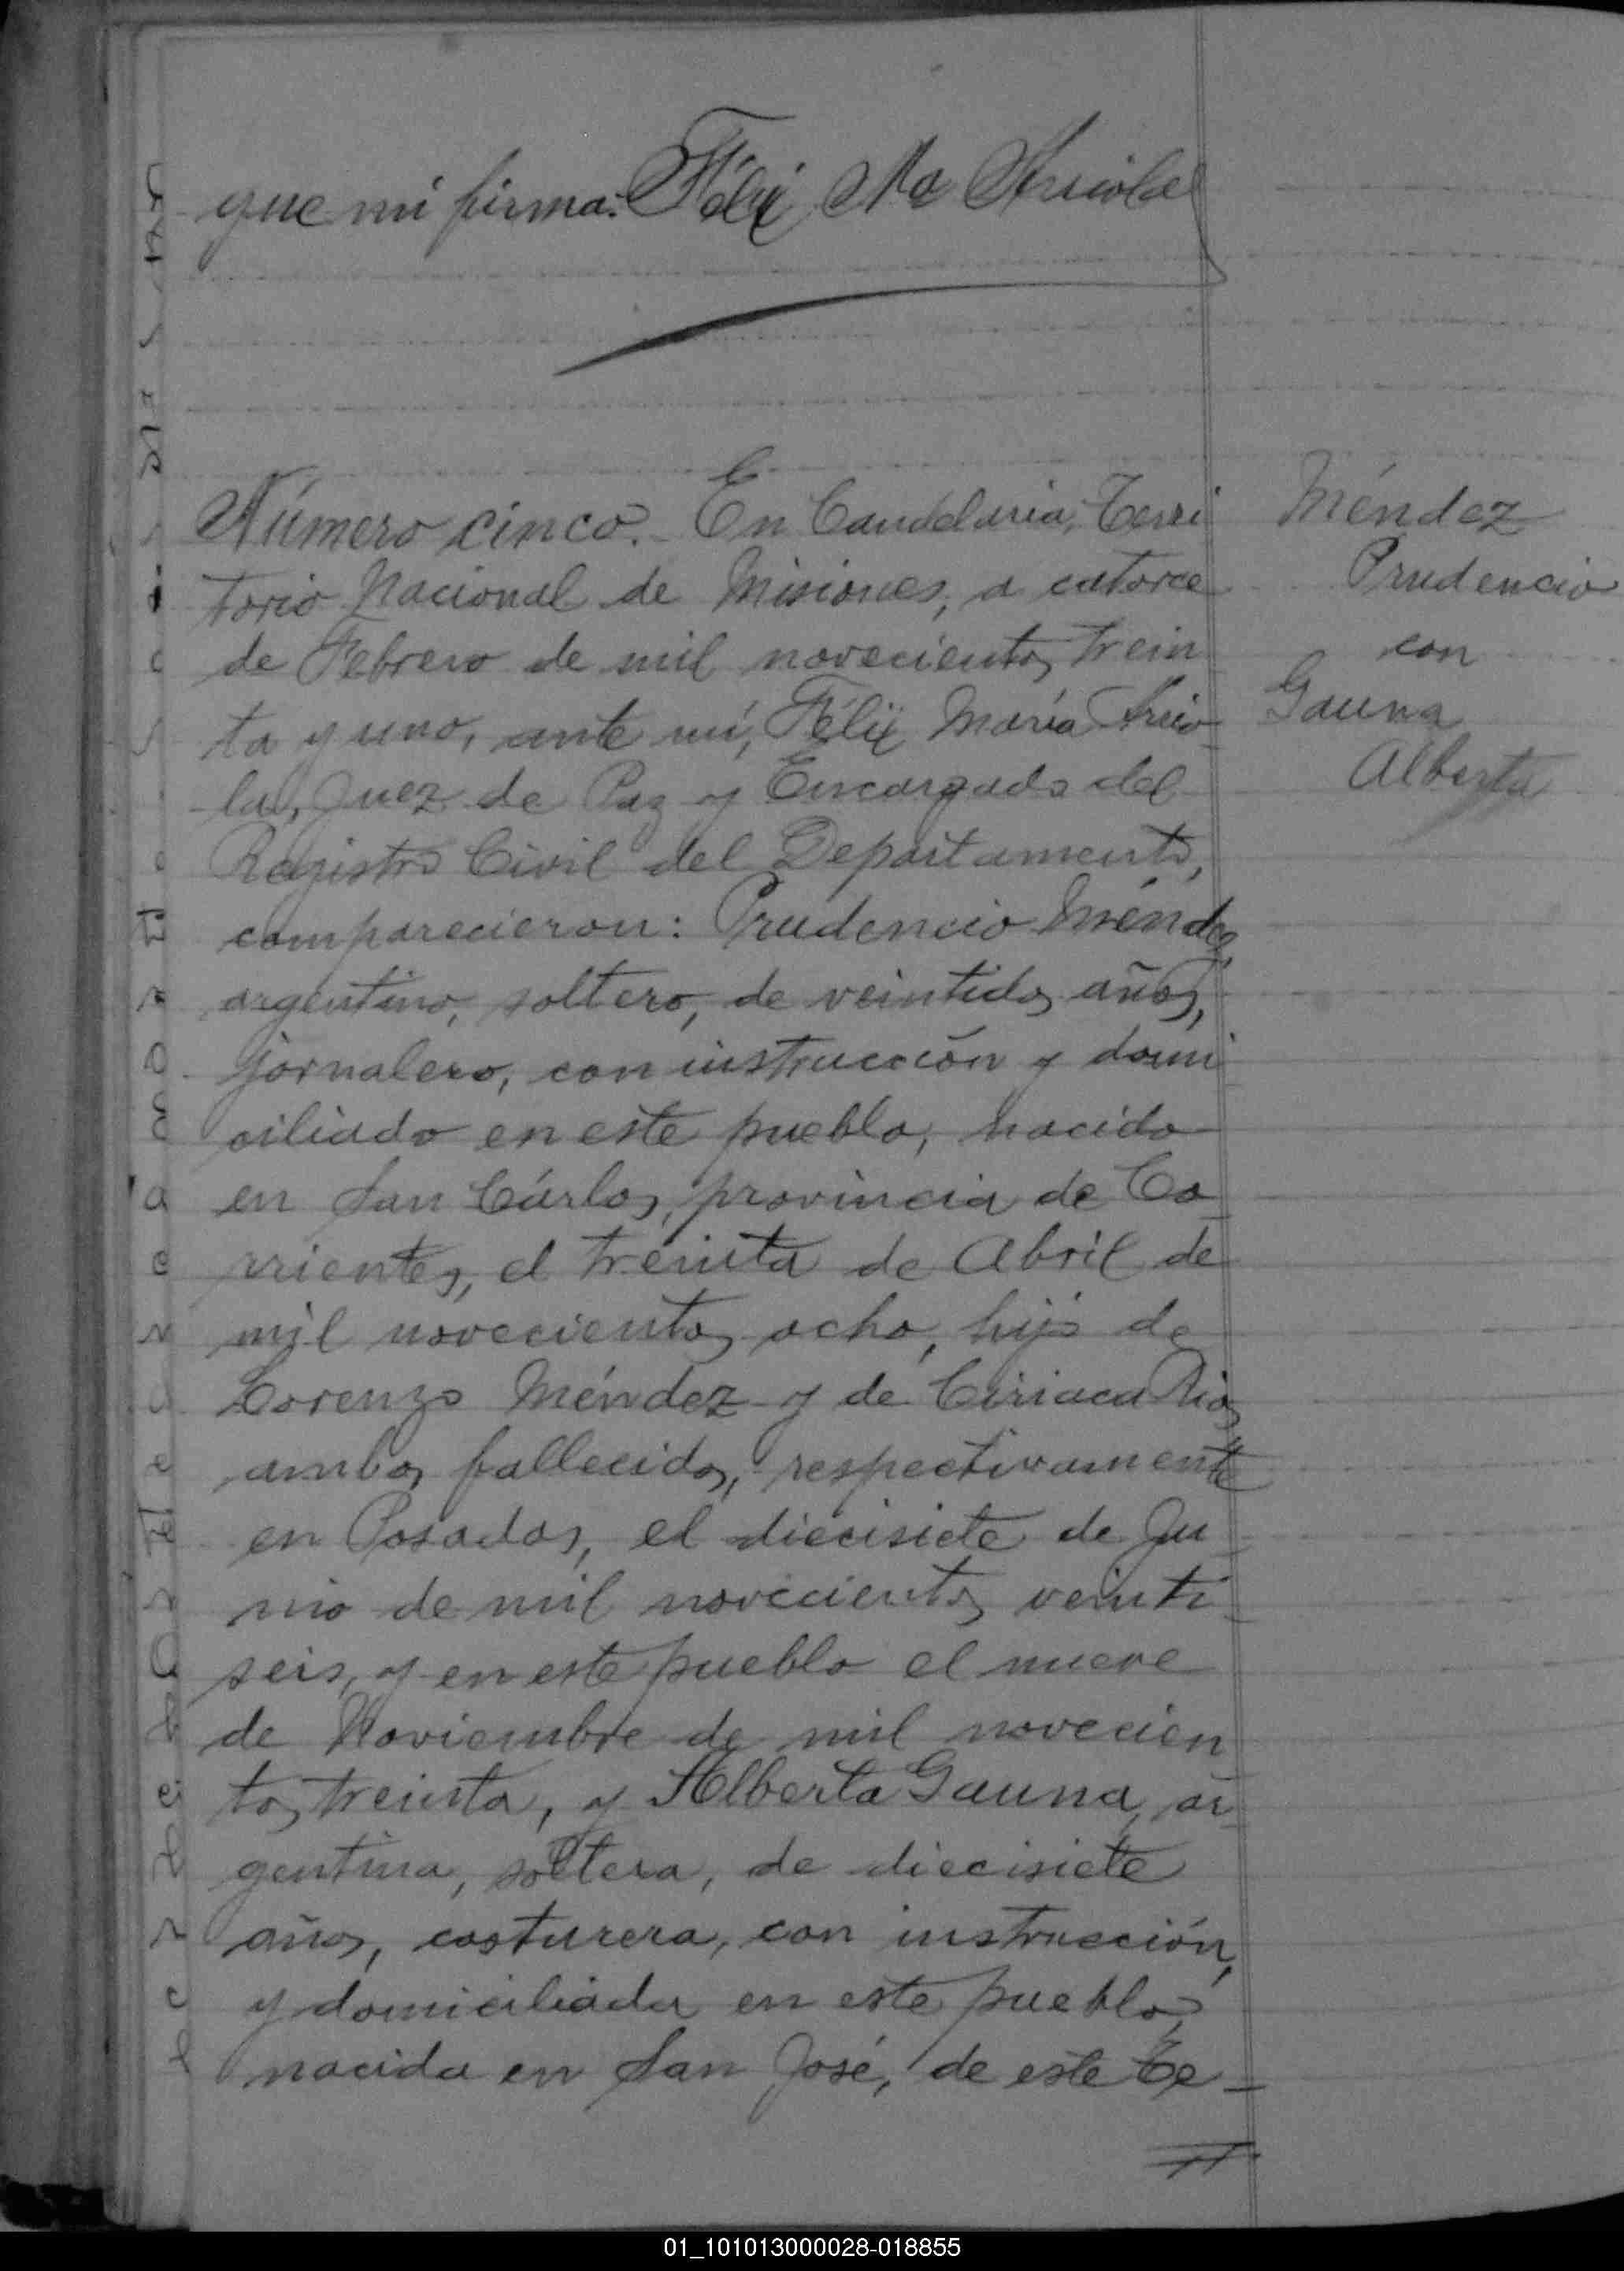 que mi firma: Félix Ma Arriola
Número cinco. En Candelaria, Terri
torio Nacional de Misiones, a catorce
de Febrero de mil novecientos trein
ta y uno, ante mí, Félix María Arrio
la, Juez de Paz y Encargado del
Registro Civil del Departamento,
comparecieron: Prudencio Méndez,
argentino, soltero, de veintidos años,
jornalero, con instrucción y domi
ciliado en este pueblo, nacido
en San Cárlos, provincia de Co
rrientes, el treinta de Abril de
mil novecientos ocho, hijo de
Lorenzo Méndez y de Ciriaca Rios
ambos fallecidos, respectivamente
en Posadas, el diecisiete de Ju
nio de mil novecientos veinti
seis, y en este pueblo el nueve
de Noviembre de mil novecien
tos treinta, y Alberta Gauna, ar
gentina, soltera, de diecisiete
años, costurera, con instrucción,
y domiciliada en este pueblo,
nacida en San José, de este Te-
Méndez
Prudencio
con
Gauna
Alberta
01_101013000028-018855